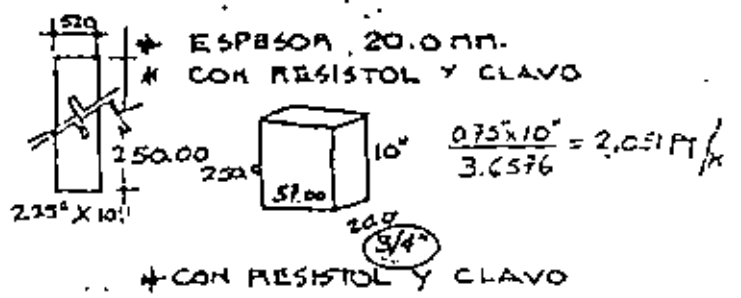 520
* ESPESOR 20.0 mm.
* CON RESISTOL Y CLAVO
250.00
2.25" X 10"
250.0
57.00
10"
20.0
3/4"
0.75"x10"
3.6576
= 2.051 PT/
* CON RESISTOL Y CLAVO